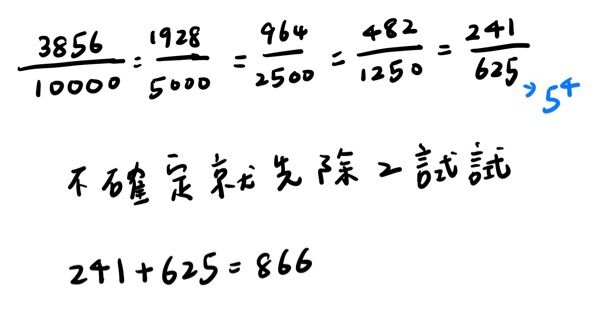 3856/10000 = 1928/5000 = 964/2500 = 482/1250 = 241/625 → 5^4
不確定就先除2試試
241+625=866